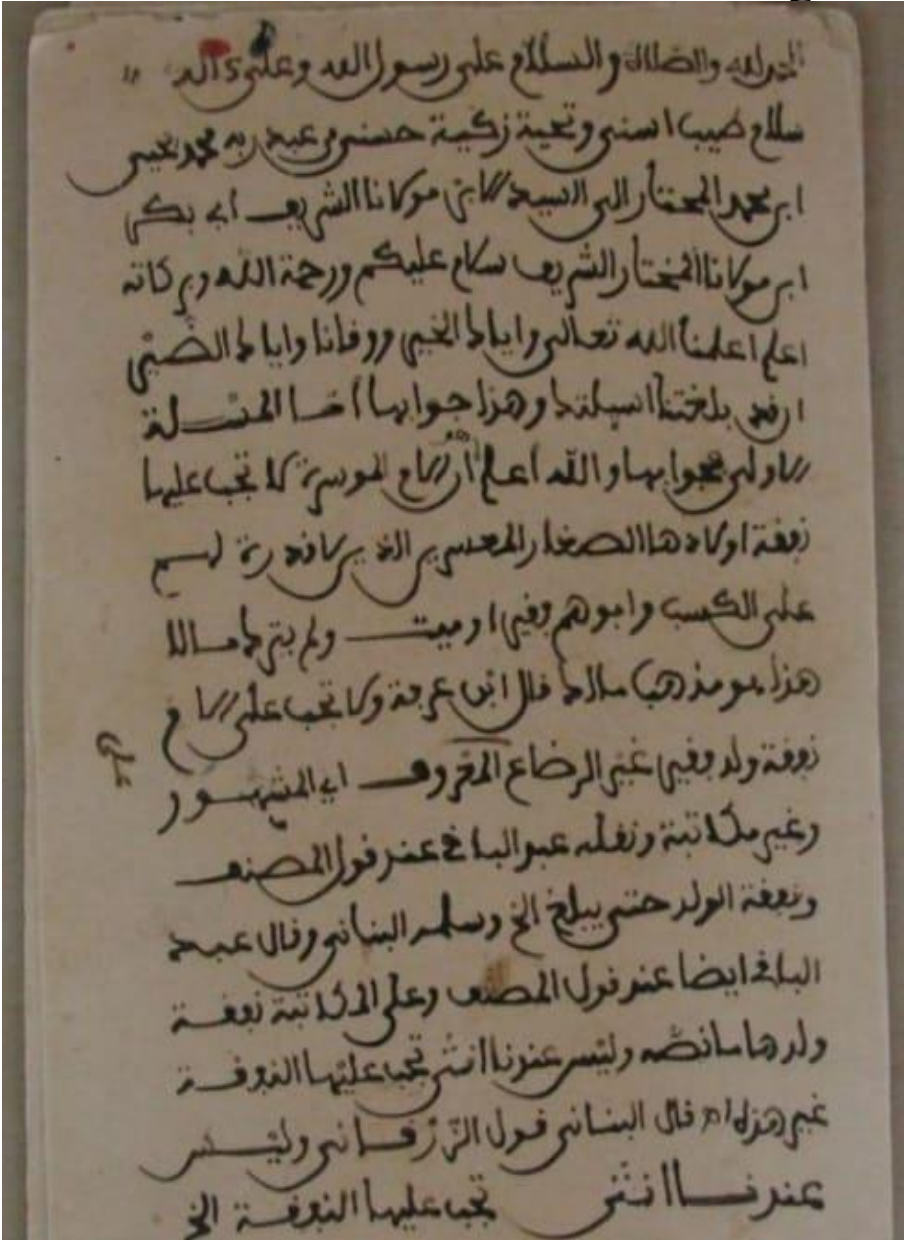 الحمد لله والصلاة والسلام على رسول الله وعلى ءاله
سلام طيب اسنى وتحية زكية حسنى من عبد ربه محمد يحيى
ابن محمد المختار الى السيد الابن مولانا الشريف ابي بكر
ابن مولانا المختار الشريف سلام عليكم ورحمة الله وبركاته
اعلم اعلمنا الله تعالى واياك الخير ووقانا واياك الضير
ان قد بلغتنا اسيلتك وهذا جوابها أما المسئلة
الاولى فجوابها والله أعلم أن الام الموسرة لا تجب عليها
نفقة اولادها الصغار المعسرين الذين لا قدرة لهم
على الكسب وابوهم فقير او ميت ولم يترك مالا
هذا هو مذهب مالك قال ابن عرفة ولا تجب على الام
نفقة ولد فقير غير الرضاع المعروف اي المشهور
على
وغير مكاتبة ونقله عبد الباقي عند قول المصنف
ونفقة الولد حتى يبلغ الخ وسلمه البناني وقال عبد
الباقي ايضا عند قول المصنف وعلى المكاتبة نفقة
ولدها ما نصه وليس عندنا انثى تجب عليها النفقة
غير هذه اه قال البناني قول الزرقاني وليس
عندنا انثى تجب عليها النفقة الخ